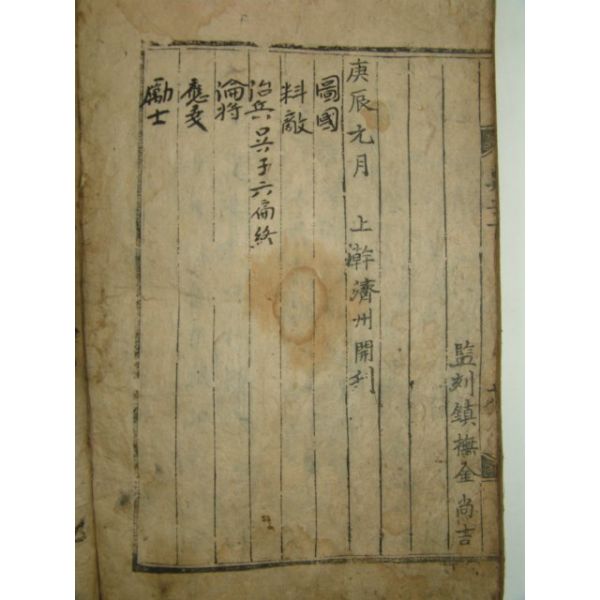 監刻鎮撫金尚吉
庚辰元月 上澣濟州開刊
圖國
料敵
治兵 吳子六偏終
論將
應变
勵士